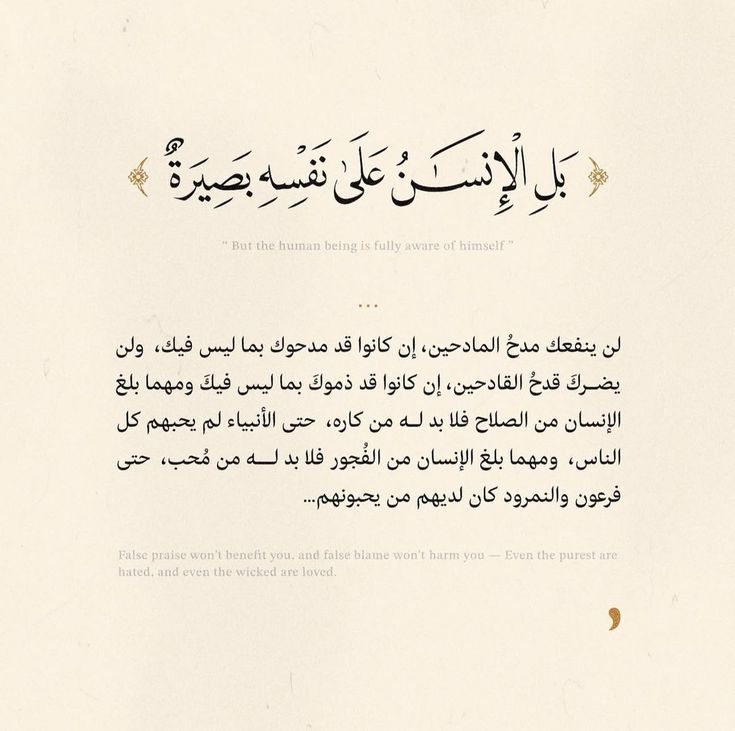 ﴿ بَلِ الْإِنسَـٰنُ عَلَىٰ نَفْسِهِ بَصِيرَةٌ ﴾
“ But the human being is fully aware of himself ”
...
لن ينفعك مدحُ المادحين، إن كانوا قد مدحوك بما ليس فيك، ولن
يضـركَ قدحُ القادحين، إن كانوا قد ذموكَ بما ليس فيكَ ومهما بلغ
الإنسان من الصلاح فلا بد لـه من كاره، حتى الأنبياء لم يحبهم كل
الناس، ومهما بلغ الإنسان من الفُجور فلا بد لـــه من مُحب، حتى
فرعون والنمرود كان لديهم من يحبونهم...
False praise won't benefit you, and false blame won't harm you — Even the purest are
hated, and even the wicked are loved.